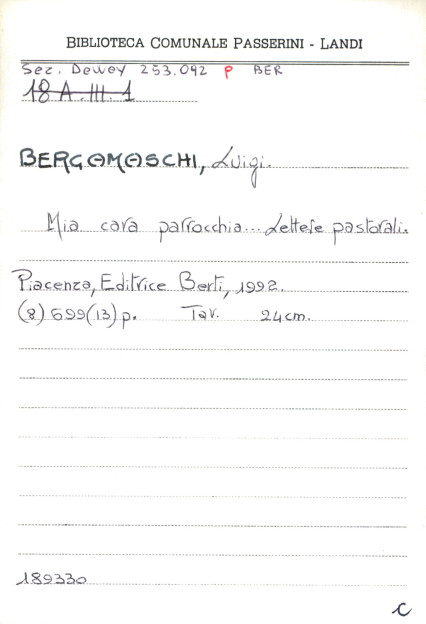 BIBLIOTECA COMUNALE PASSERINI - LANDI
Sez. Dewey 253.092 P BER
18 A. III. 1
BERGAMASCHI, Luigi.
Mia cara parrocchia... Lettere pastorali.
Piacenza, Editrice Berti, 1992.
(8) 699 (13) p. Tav. 24 cm.
189330
C